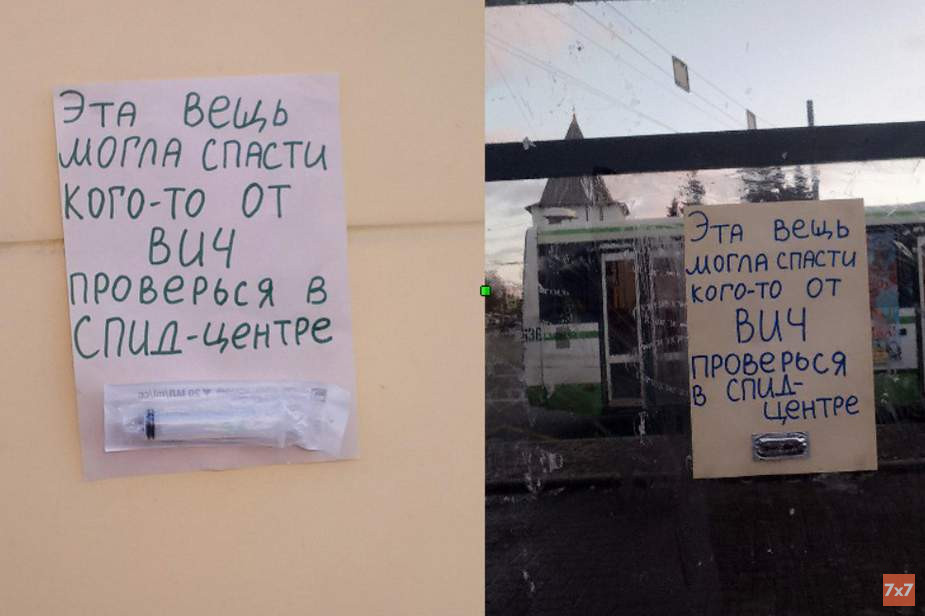 Эта вещь
могла спасти
кого-то от
ВИЧ
проверься в
СПИД-центре
20 мл/ml/cc
Эта вещь
могла спасти
кого-то от
ВИЧ
проверься
в СПИД-
центре
636
7x7